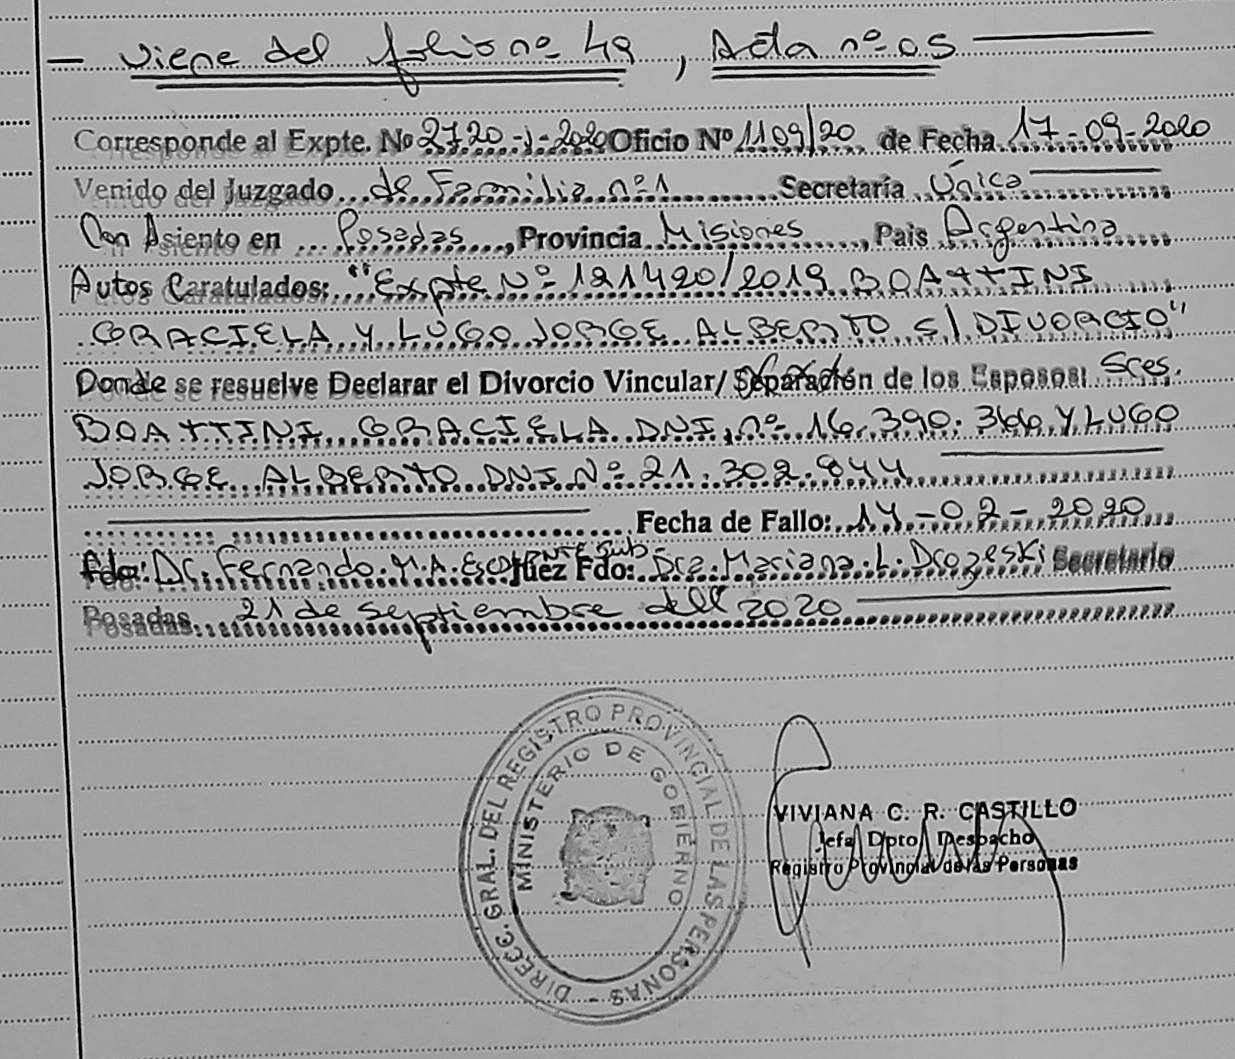 — Viene del folio nº 49, Acta nº 05 —
Corresponde al Expte. Nº 2720-J-2020 Oficio Nº 1109/20 de Fecha 17-09-2020
Venido del Juzgado de Familia nº 1 Secretaría Única
Con Asiento en Posadas, Provincia Misiones, País Argentina
Autos Caratulados: "Expte Nº 121420/2019 BOATTINI
GRACIELA Y LUGO JORGE ALBERTO S/ DIVORCIO"
Donde se resuelve Declarar el Divorcio Vincular/ Separación de los Esposos: Sres.
BOATTINI GRACIELA DNI nº 16.390.366 Y LUGO
JORGE ALBERTO DNI Nº 21.302.944
Fecha de Fallo: 14-02-2020
Fdo: Dr. Fernando M.A. Juez Fdo: Dra. Mariana L. Secretario
Posadas, 21 de septiembre del 2020
DIRECC. GRAL. DEL REGISTRO PROVINCIAL DE LAS PERSONAS -
MINISTERIO DE GOBIERNO
VIVIANA C. R. CASTILLO
Jefa Dpto Despacho
Registro Provincial de las Personas